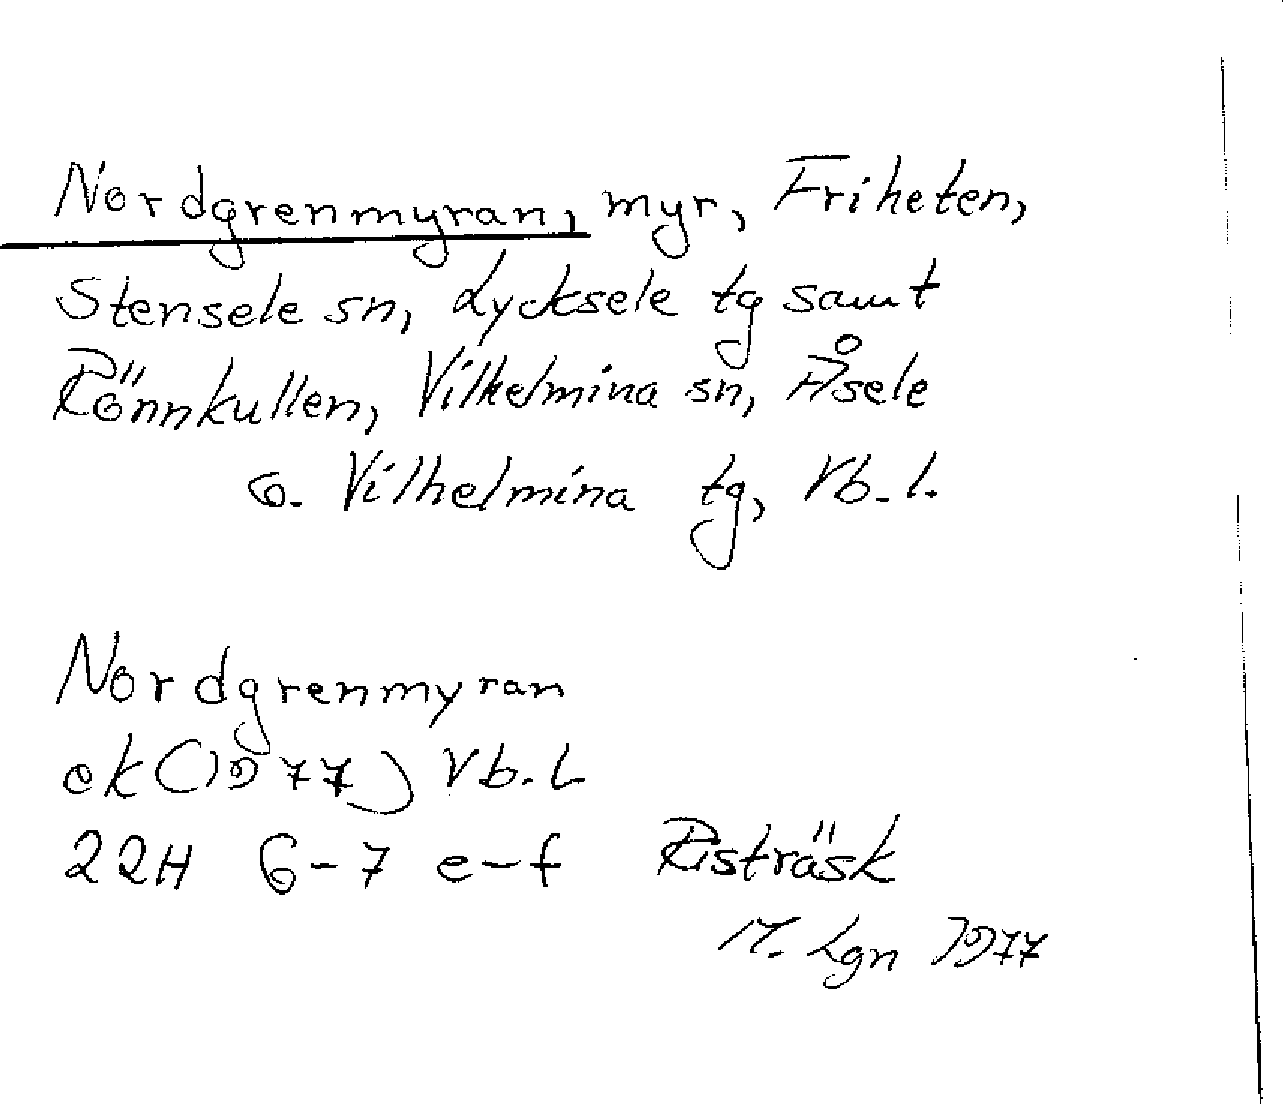 Nordgrenmyran, myr, Friheten,
Stensele sn, Lycksele tg samt
Rönnkullen, Vilhelmina sn, Åsele
o. Vilhelmina tg, Vb. l.
Nordgrenmyran
ek (1977) Vb. L
22H 6-7 e-f Risträsk
M. Lgn 1977